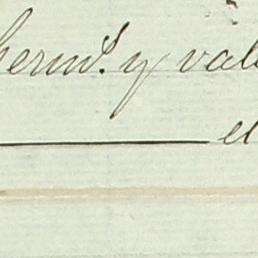 herm.s y val
el